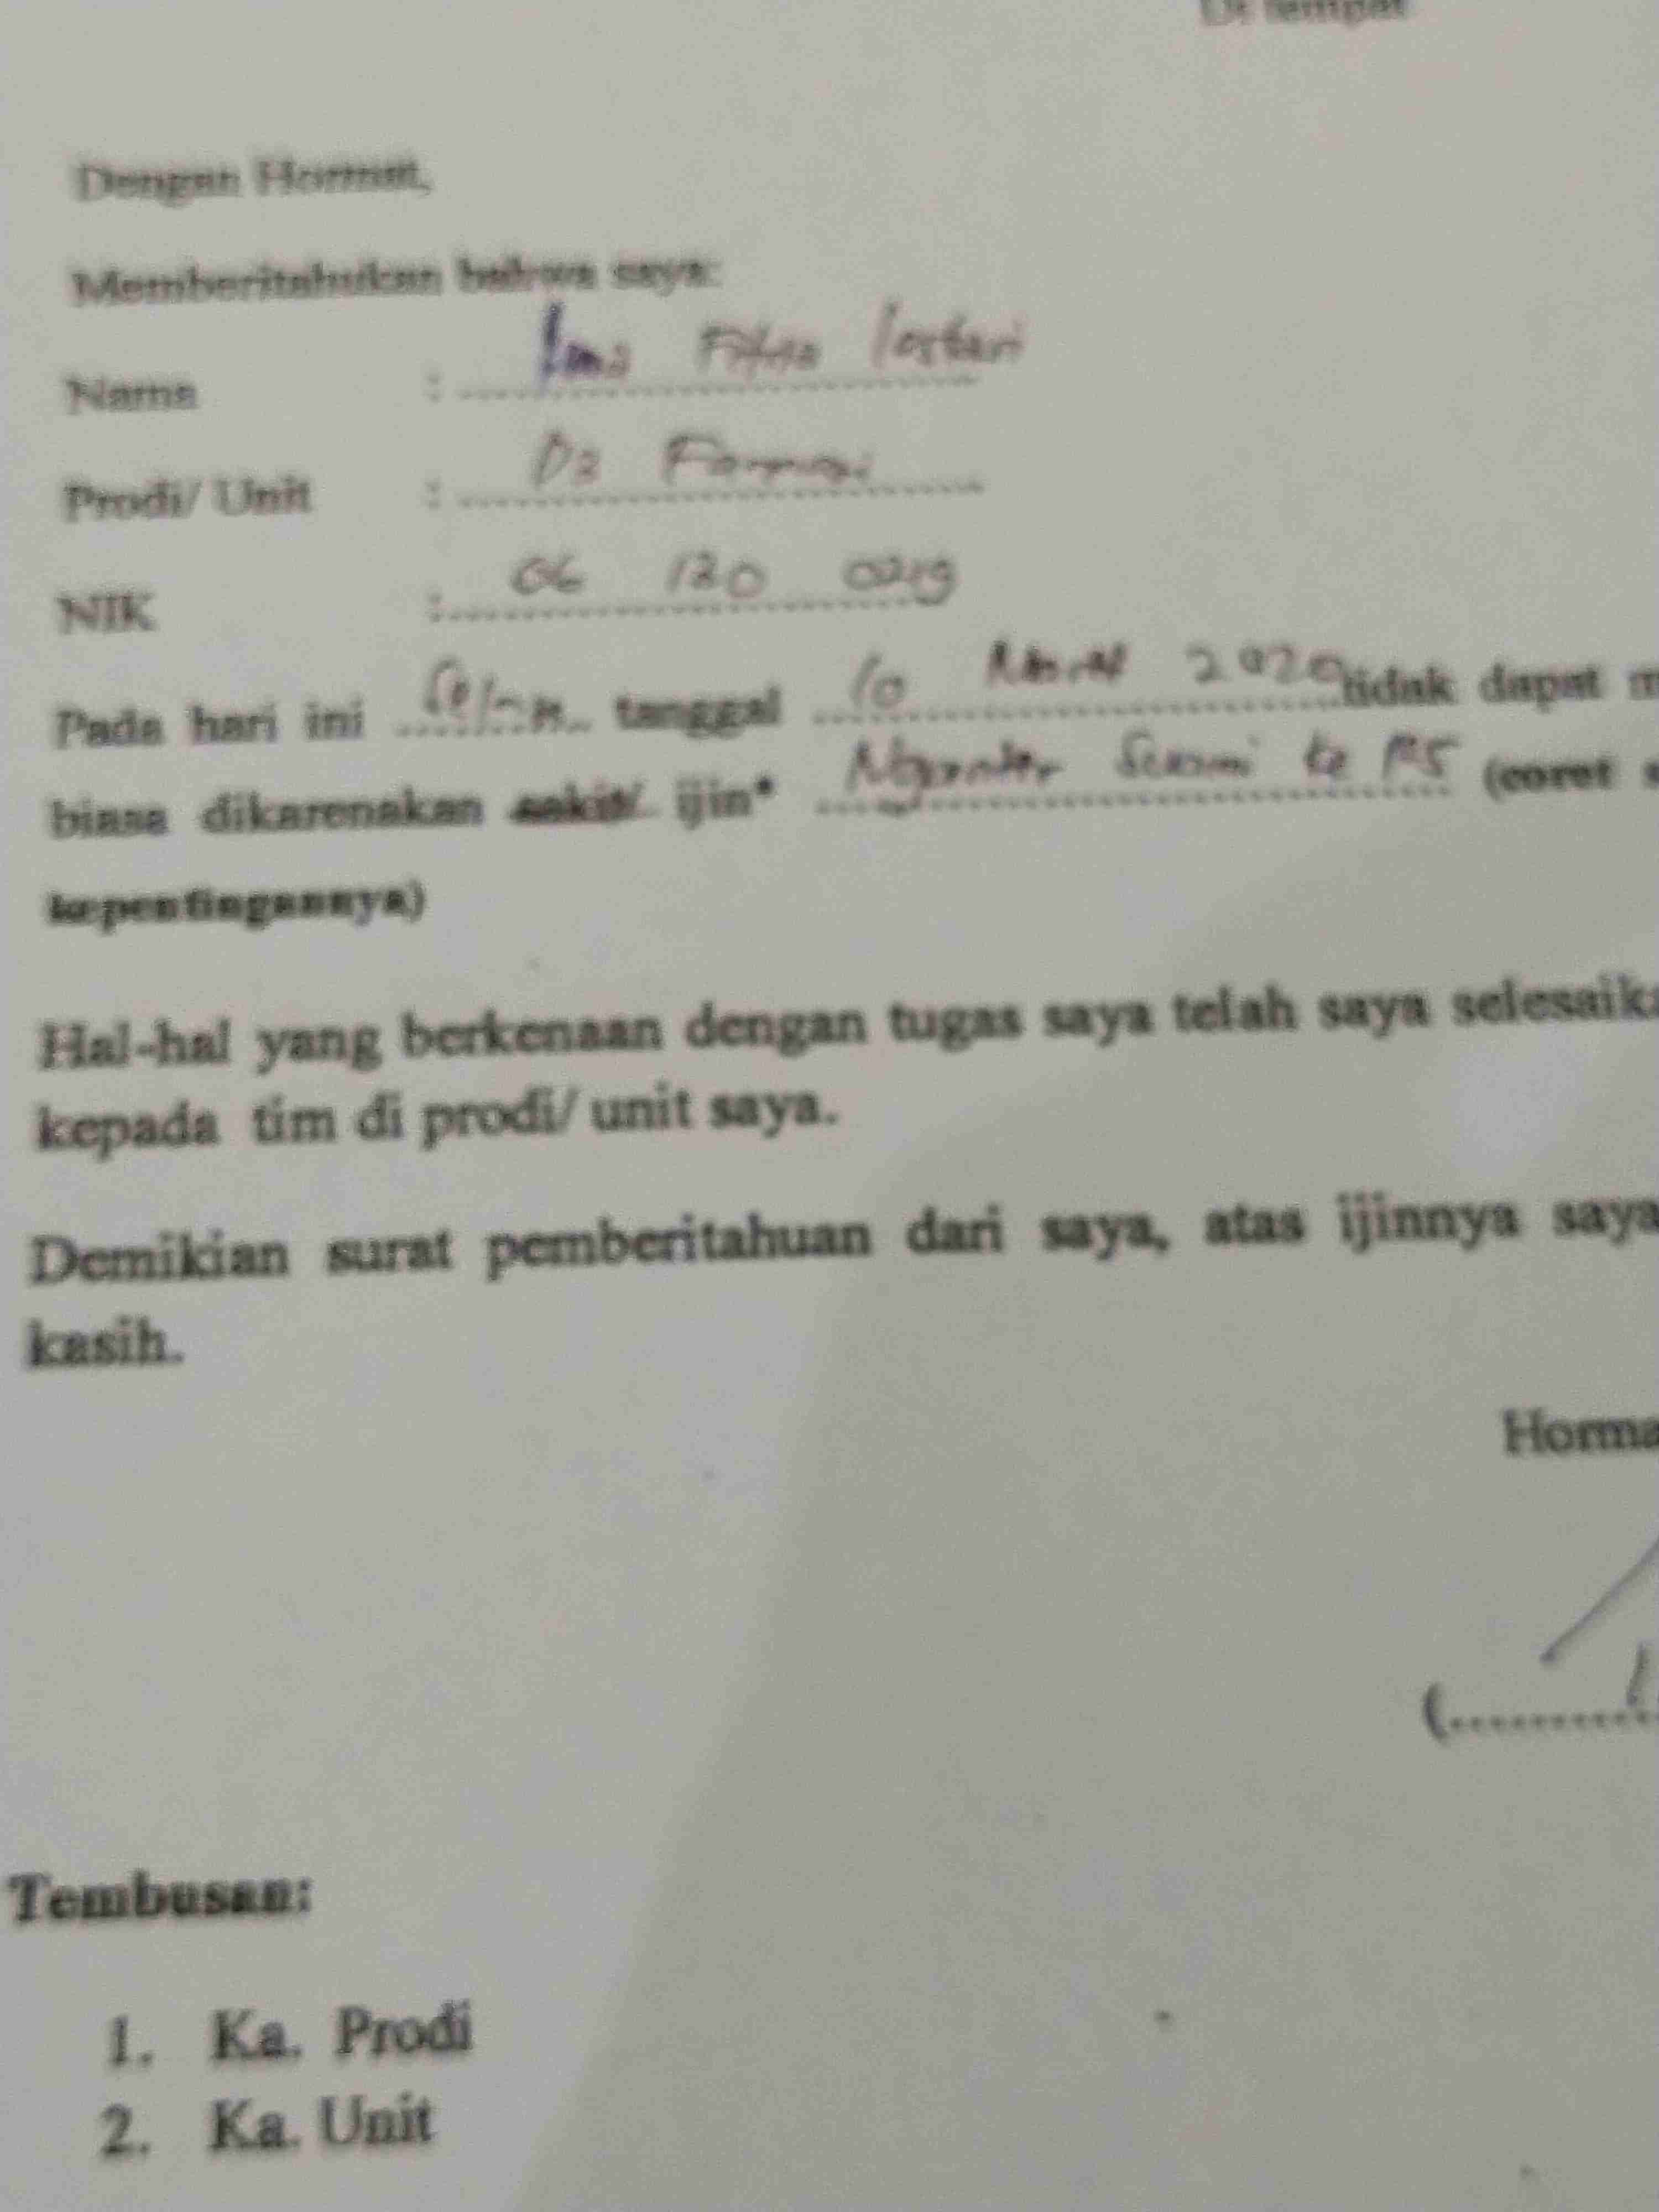 Di tempat
Dengan Hormat,
Memberitahukan bahwa saya:
Nama : Fitria lestari
Prodi/ Unit : D3 Farmasi
NIK : 06 120 0219
Pada hari ini Selasa tanggal 10 Maret 2020 tidak dapat
biasa dikarenakan sakit/ ijin* Nganter Suami ke RS (coret
kepentingannya)
Hal-hal yang berkenaan dengan tugas saya telah saya selesaika
kepada tim di prodi/ unit saya.
Demikian surat pemberitahuan dari saya, atas ijinnya saya
kasih.
Horma
(............
Tembusan:
1. Ka. Prodi
2. Ka. Unit